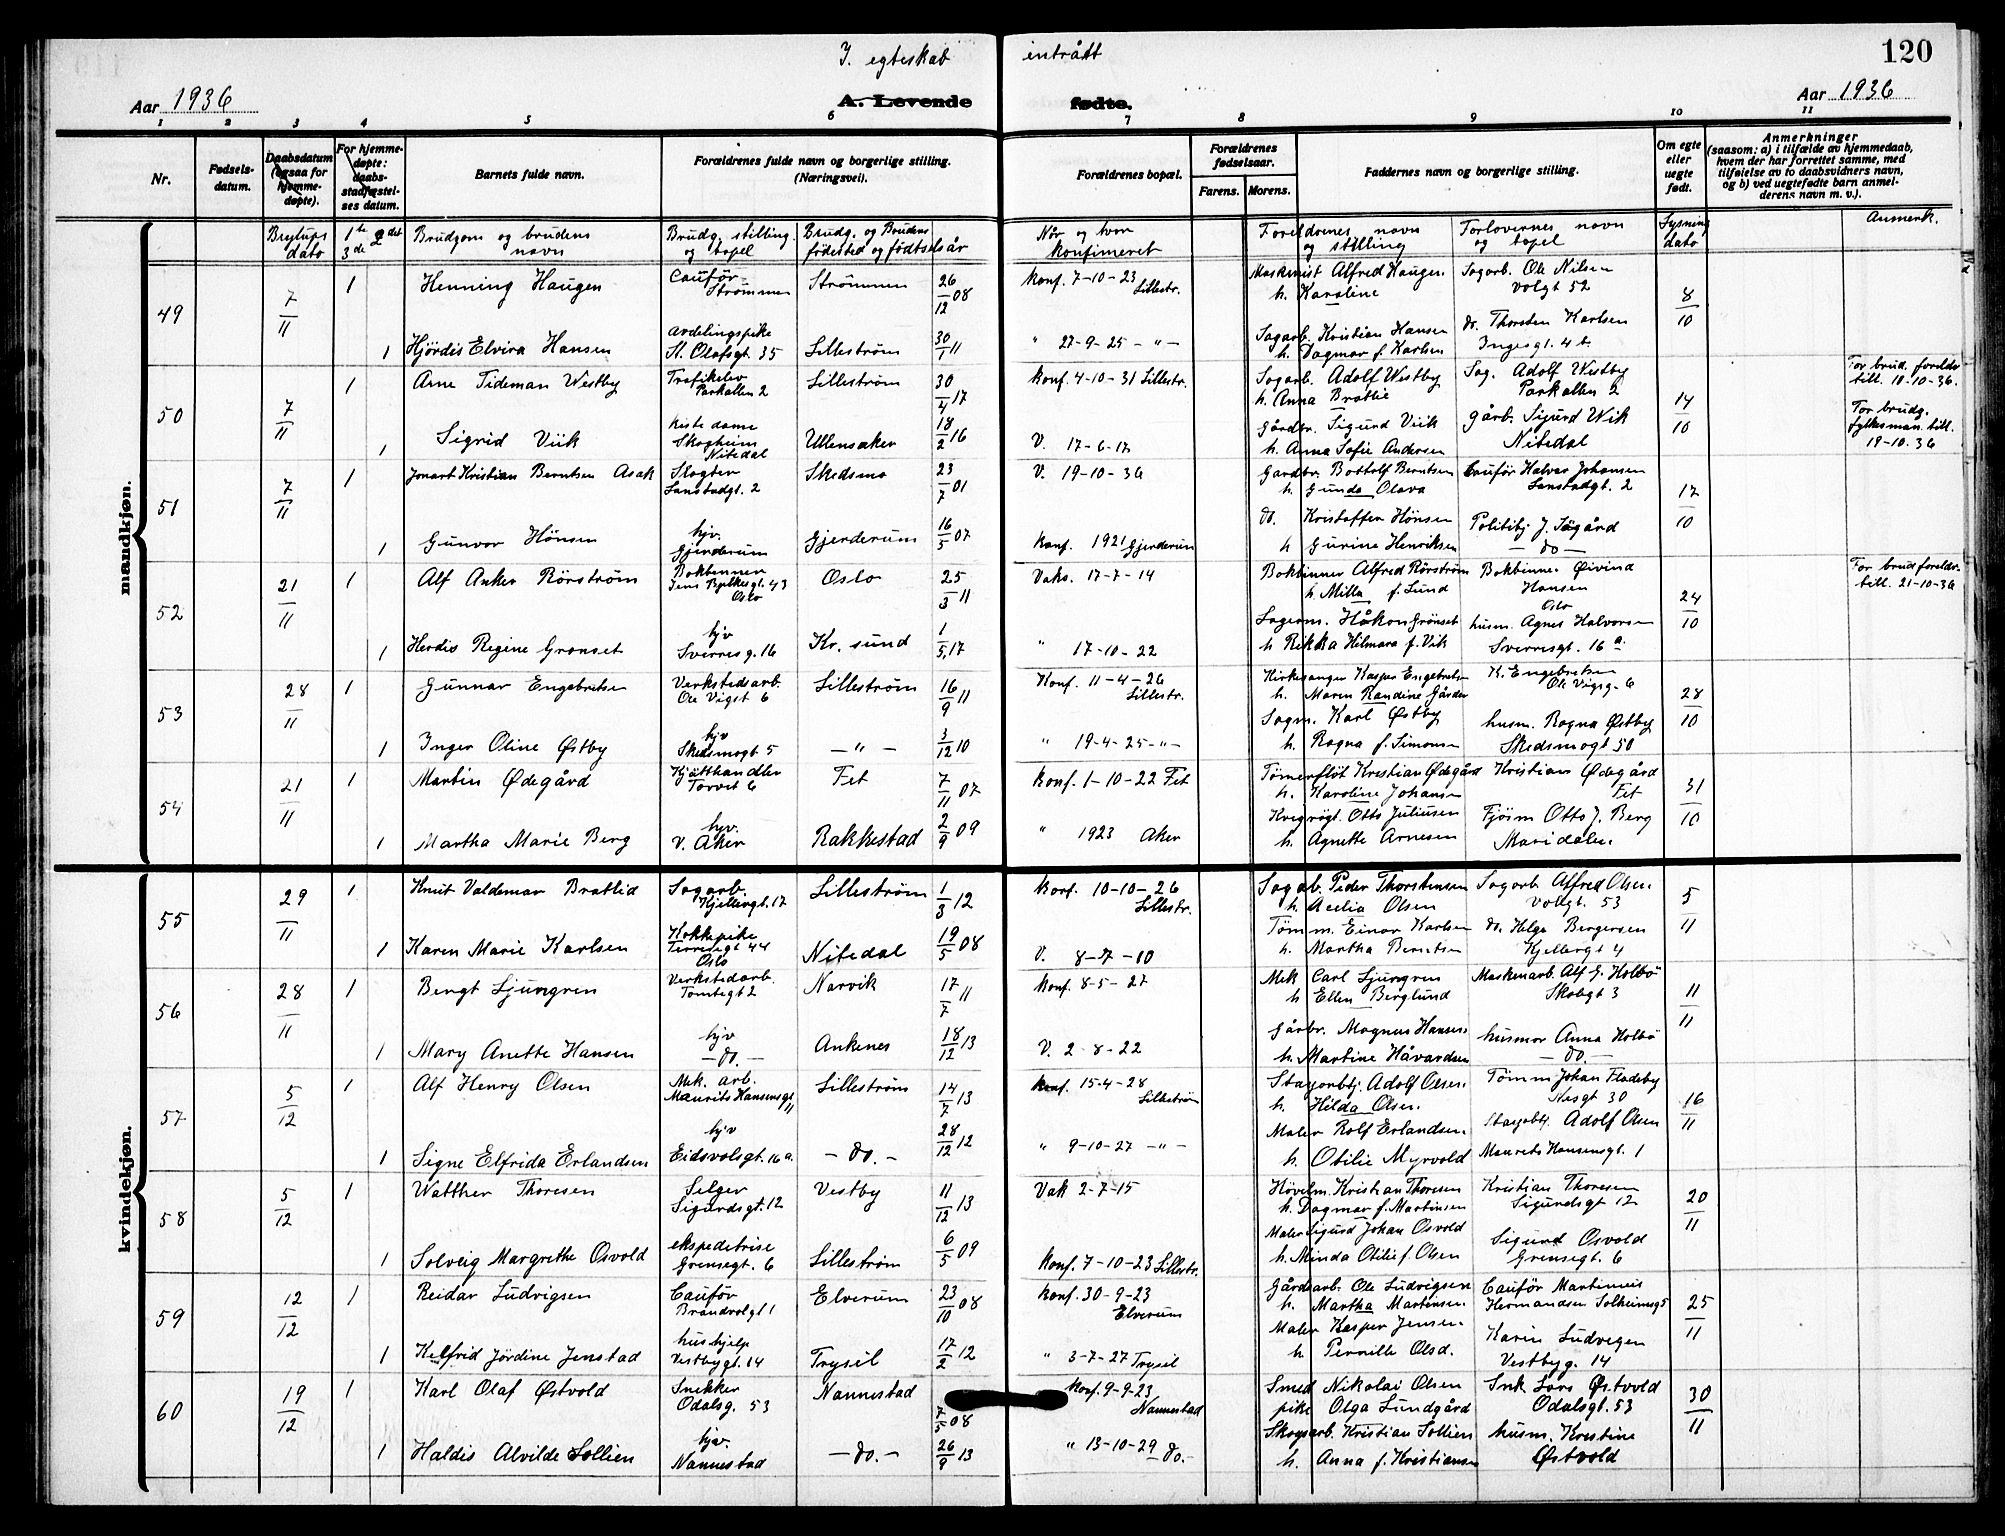 I. egteskab inträtt
120
Aar 1936
A. Levende fødte.
Aar 1936
1 2 3 4 5 6 7 8 9 10 11
Nr.
Fødsels-
datum.
Daabsdatum
(ogsaa for
hjemme-
døpte).
For hjemme-
døpte:
daabs-
stadfæstel-
ses datum.
Barnets fulde navn.
Forældrenes fulde navn og borgerlige stilling.
(Næringsvei).
Forældrenes bopæl.
Forældrenes
fødselsaar.
Farens. Morens.
Faddernes navn og borgerlige stilling.
Om egte
eller
uegte
født.
Anmerkninger
(saasom: a) i tilfælde av hjemmedaab,
hvem der har forrettet samme, med
tilføielse av to daabsvidners navn,
og b) ved uegtefødte barn anmel-
derens navn m. v.).
Bryllups
dato
1ste 2det
3de
Brudgom og brudens
navn
Brudg. stilling
og bopel
Brudg. og Brudens
födested og födselsår
Når og hvor
konfirmeret
Foreldrenes navn
og stilling
Forlovernes navn
og bopel
Lysning
dato
Anmerk.
mandkjøn.
49
7/11
1 Henning Haugen
Caufför
Strömmen
Strömmen
26/12 08
konf. 7-10-23
Lillestr.
Maskinist Alfred Haugen
h. Karoline
Sagarb. Ole Nilsen
Volgt 52
8/10
1 Hjördis Elvira Hansen
Avdelingspike
St. Olafsgt. 35
Lilleström
30/1 11
" 27-9-25 - " -
Sagarb. Kristian Hansen
h. Dagmar f. Karlsen
do. Thorsten Karlsen
Ingesgt. 4 b
50
7/11
1 Arne Tideman Westby
Trafikelev
Parkallen 2
Lilleström
30/4 17
konf. 4-10-31 Lillestr.
Sogarb. Adolf Westby
h. Anna Bratlie
Sag. Adolf Westby
Parkallen 2
14/10
For brud. foreldr.
till. 10-10-36.
1 Sigrid Viik
Skogheim
Nitedal
Ullensaker
18/2 16
V. 17-6-17
Gårdbr. Sigurd Viik
h. Anna Sofie Andersen
gårb. Sigurd Wik
Nitedal
For brudg.
fylkesman. till.
19-10.36
51
7/11
1 Jonart Kristian Berntsen Asak
Lanstadgt. 2
Skedsmo
23/7 01
V. 19-10-36
Gardbr. Bottolf Berntsen
h. Gunda Olava
Caufför Halvar Johansen
Lanstadgt. 2
17/10
1 Gunvor Hönsen
hjv.
Gjerderum
Gjerderum
16/5 07
konf. 1921 Gjerderum
do. Kristoffer Hönsen
h Gurine Henriksen
Politibj J. Sögård
- do -
52
21/11
1 Alf Anker Rörström
Bokbinner
Jens Bjelkesgt. 43
Oslo
Oslo
25/3 11
Vaks. 17-7-14
Bokbinner Alfred Rörström
h. Milla f. Lund
Bokbinner Öivind
Hansen
Oslo
24/10
For brud foreldr.
till. 21-10-36
1 Herdis Regine Grönset
hjv
Sverresg. 16
Kr. sund
1/5 17
" 17-10-22
Lagerm. Håkon Grönset
h Rikka Hilmara f. Vik
husm. Agnes Halvorsen
Sverresgt. 16 a.
53
28/11
1 Gunnar Engebretsen
Verkstedsarb.
Ole Vigst 6
Lilleström
16/9 11
Konf. 11-4-26
Lillestr.
Kirkesanger Kasper Engebretsen
h. Maren Randine Gårder
K. Engebretsen
Ole Vigsg. 6
28/10
1 Inger Oline Østby
hjv
Skedsmogt 5
- " -
3/12 10
" 19-4-25-"-
Sagm. Karl Østby
h. Ragna f. Simonsen
husm. Ragna Østby
Skedsmogt 50
54
21/11
1 Martin Ødegård
Kjötthandler
Torvet 6
Fet
7/11 07
konf. 1-10-22 Fet
Tömerflöt Kristian Ødegård
h. Karoline Johansen
Kristians Ødegård
Fet
31/10
1 Martha Marie Berg
hjv.
V. Aker
Rakkestad
2/9 09
" 1923 Aker
Kregrögt. Otto Juliusen
h. Agnette Arnesen
Fjösm Otto J. Berg
Maridalen.
kvindekjøn.
55
29/11
1 Knut Valdemar Bratlid
Sagarb.
Kjellergt. 17
Lilleström
1/3 12
konf. 10-10-26
Lillestr.
Sagarb. Peder Thorstensen
h. Acelia Olsen
Sagarb. Alfred Olsen.
Volgt. 53
5/11
1 Karen Marie Karlsen
Kokkepike
Oslo
Nitedal
19/5 08
V. 8-7-10
Tömm. Einar Karlsen
h. Martha Berntsen
do. Helga Bergersen
Kjellergt 4
56
28/11
1 Bengt Ljungren
Verkstedarb.
Tomtegt 2
Narvik
17/7 11
konf. 8-5-27
Mek Carl Ljungren
h Ellen Berglund
Maskenarb. Alf G. Holbö
Skolegt 3
11/11
1 Mary Anette Hansen
hjv
- do. -
Ankenes
18/12 13
V. 2-8-22
Gårbr. Magnus Hansen.
h. Martine Håvardsen
husmor Anna Holbö
- do. -
57
5/12
1 Alf Henry Olsen
Mek. arb.
Maurits Hansensgt 11
Lilleström
14/7 13
konf. 15-4-28
Lilleström
Stasjonbtj. Adolf Olsen.
h. Hilda Olsen.
Tömm Johan Fladeby
Nesgt 30
16/11
1 Signe Elfrida Erlandsen
hjv
Eidsvolsgt. 16 a.
- do. -
28/12 12
" 9-10-27 -"-
Maler Rolf Erlandsen.
h. Otilie Myrvold
Adolf Olsen
Maurits Hansensgt. 1
58
5/12
1 Walther Thoresen
Selger
Sigurdsgt. 12
Vestby
11/12 13
Vak 2-7-15
Hövelm. Kristian Thoresen
h. Dagmar f. Martinsen
Kristian Thoresen
Sigurdsgt 12
20/11
1 Solveig Margrethe Osvold
ekspeditrise
Grensegt. 6
Lilleström
6/5 09
konf. 7-10-23 Lillestr.
Maler Sigurd Johan Osvold
h. Minda Otilie f. Olsen
Sigurd Osvold
Grensegt. 6
59
12/12
1 Reidar Ludvigsen
Caufför
Brandvolgt 1
Elverum
23/10 08
konf. 30-9-23
Elverum
Gårdsarb. Ole Ludvigsen
h. Martha Martinsen.
Caufför Martinius
Hermandsen Solheimsg 5
25/11
1 Kelfrid Jördine Jenstad
hushjelp
Vestbygt. 14
Trysil
17/2 12
" 3-7-27 Trysil
Maler Kasper Jensen.
h Pernille Olsd.
Karin Ludvigsen
Vestbyg. 14
60
19/12
1 Karl Olaf Østvold
Snekker
Odalsg. 53
Nannestad
7/5 08
konf. 9-9-23
Nannestad
Smed Nikolai Olsen
pike Olga Lundgård
Snk. Lars Østvold
Odalsgt. 53
30/11
1 Haldis Alvilde Sollien
hjv.
Nannestad
- do. -
26/9 13
" 13-10-29 - do. -
Skogsarb. Kristian Sollien
h. Anna f. Kristiansen
husm. Kristine
Østvold